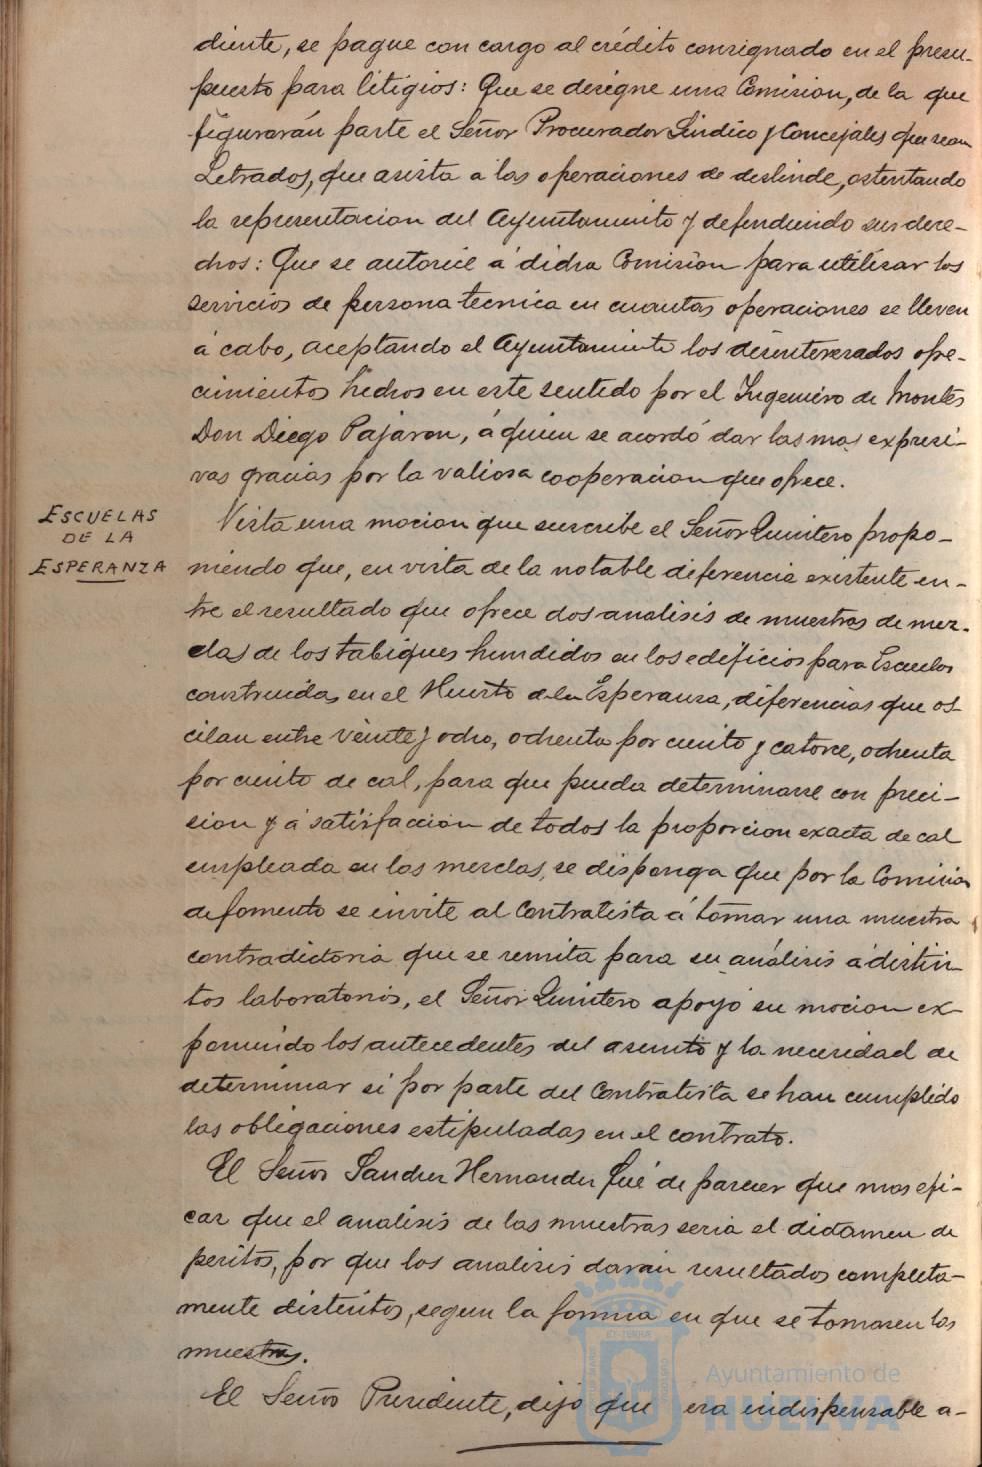 diente, se pague con cargo al crédito consignado en el presu-
puesto para litigios: Que se designe una Comision, de la que
figurarán parte el Señor Procurador Sindico y Concejales que sean
Letrados, que asista a las operaciones de deslinde, ostentando
la representacion del Ayuntamiento y defendiendo sus dere-
chos: Que se autorice á dicha Comision para utilisar los
servicios de persona tecnica en cuantas operaciones se lleven
á cabo, aceptando el Ayuntamiento los desinteresados ofre-
cimientos hechos en este sentido por el Ingeniero de Montes
Don Diego Pajaron, á quien se acordó dar las mas expresi-
vas gracias por la valiosa cooperacion que ofrece.
ESCUELAS
DE LA
ESPERANZA
Vista una mocion que suscribe el Señor Quintero propo-
niendo que, en vista de la notable diferencia existente en-
tre el resultado que ofrece dos analisis de muestras de mez-
clas de los tabiques hundidos en los edificios para Escuelas
construidas en el Huerto de la Esperanza, diferencias que os-
cilan entre veinte y ocho, ochenta por ciento y catorce, ochenta
por ciento de cal, para que pueda determinarse con preci-
sion y á satisfaccion de todos la proporcion exacta de cal
empleada en las mezclas, se disponga que por la Comision
de fomento se invite al Contratista á tomar una muestra
contradictoria que se remita para su análisis á distin-
tos laboratorios, el Señor Quintero apoyó su mocion ex-
poniendo los antecedentes del asunto y la necesidad de
determinar si por parte del Contratista se han cumplido
las obligaciones estipuladas en el contrato.
El Señor Sanchez Hernandez fué de parecer que mas efi-
caz que el analisis de las muestras seria el dictamen de
peritos, por que los analisis darian resultados completa-
mente distintos, segun la forma en que se tomasen las
muestras.
El Señor Presidente, dijo que era indispensable a-
Ayuntamiento de
HUELVA